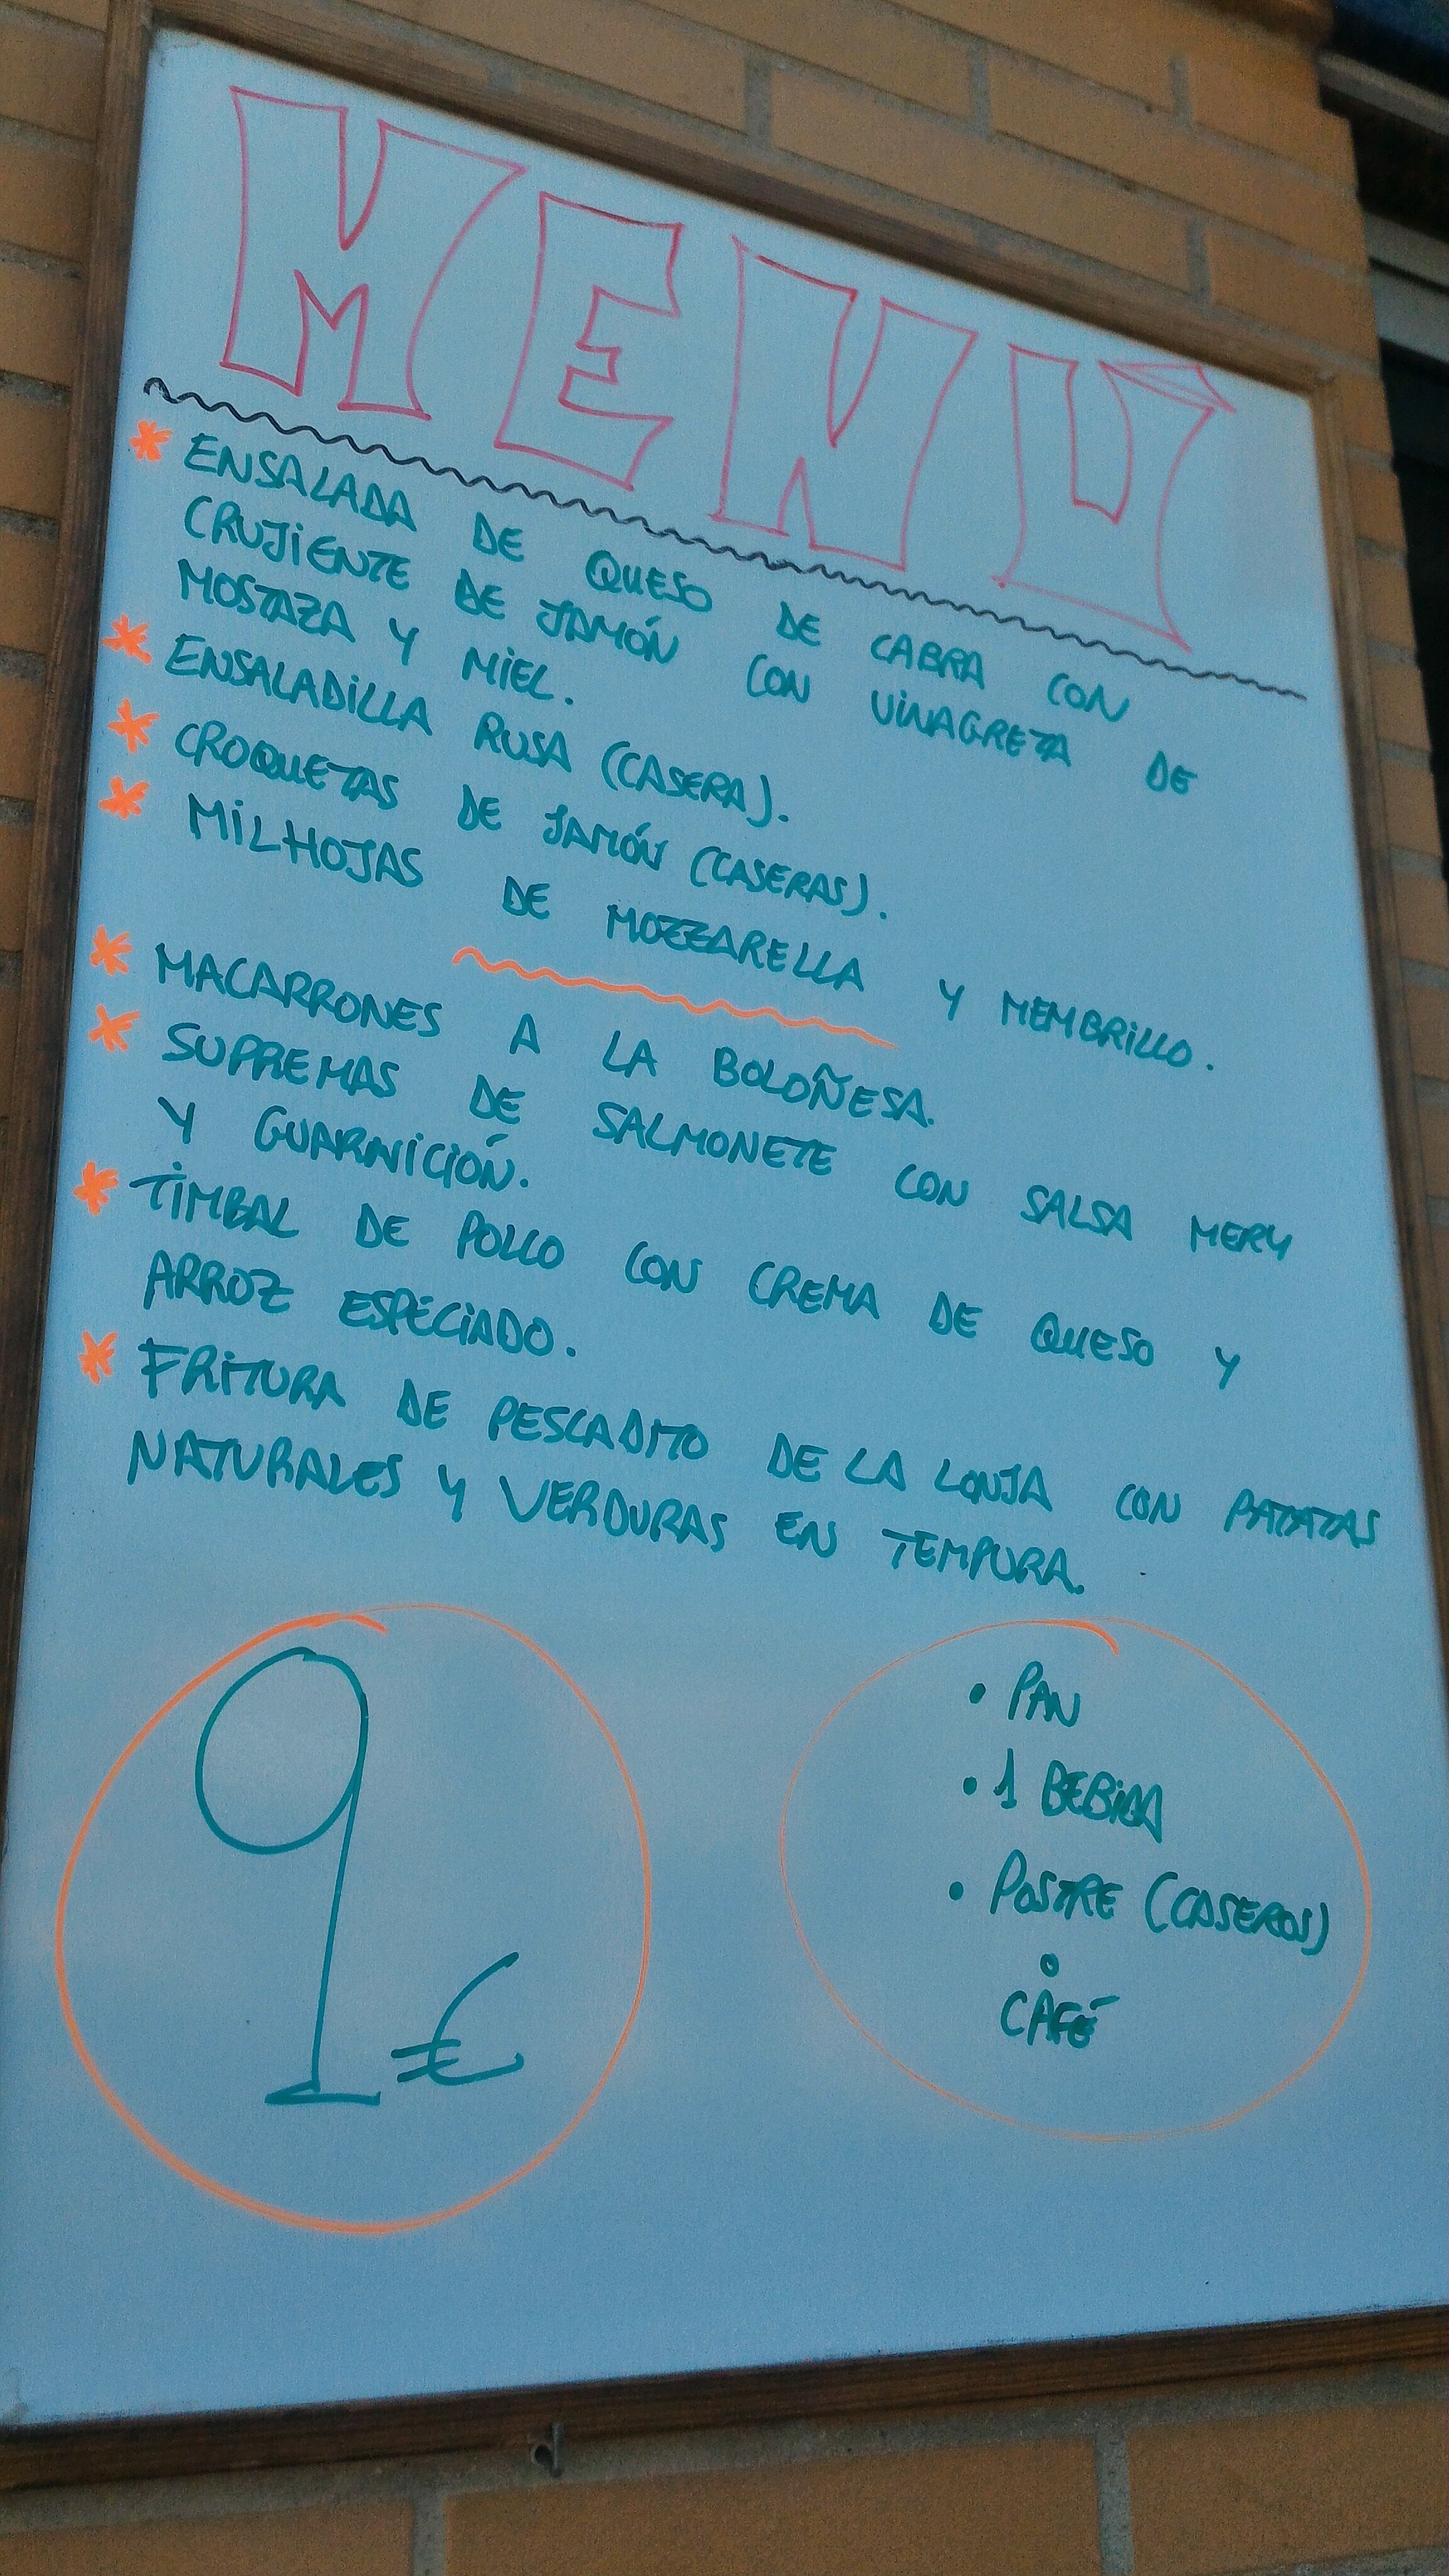 MENÚ
* ENSALADA DE QUESO DE CABRA CON
CRUJIENTE DE JAMÓN CON VINAGRETA DE
MOSTAZA Y MIEL.
* ENSALADILLA RUSA (CASERA).
* CROQUETAS DE JAMÓN (CASERAS).
* MILHOJAS DE MOZZARELLA Y MEMBRILLO.
* MACARRONES A LA BOLOÑESA.
* SUPREMAS DE SALMONETE CON SALSA MERY
Y GUARNICIÓN.
* TIMBAL DE POLLO CON CREMA DE QUESO Y
ARROZ ESPECIADO.
* FRITURA DE PESCADITO DE LA LONJA CON PATATAS
NATURALES Y VERDURAS EN TEMPURA.
9€
• PAN
• 1 BEBIDA
• POSTRE (CASEROS)
o
CAFÉ